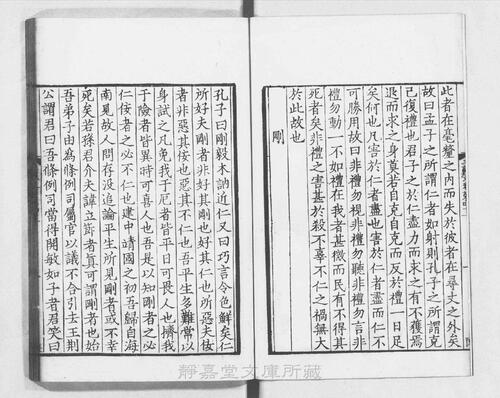 此者在毫釐之內而失於彼者在尋丈之外矣
故曰孟子之所謂仁者如射則孔子之所謂克
己復禮也君子之於仁盡力而求之有不獲焉
退而求之身莫若自克自克而反於禮一日足
矣何也凡害於仁者盡也害於仁者盡而仁不
可勝用故曰非禮勿視非禮勿聽非禮勿言非
禮勿動一不如禮在我者甚微而民有不得其
死者矣非禮之害甚於殺不辜不仁之禍無大
於此故也
剛
孔子曰剛毅木訥近仁又曰巧言令色鮮矣仁
所好夫剛者非好其剛也好其仁也所惡夫佞
者非惡其佞也惡其不仁也吾平生多難常以
身試之凡免我于厄者皆平日可畏人也擠我
于險者皆異時可喜人也吾是以知剛者之必
仁佞者之必不仁也建中靖國之初吾歸自海
南見故人問存沒追論平生所見剛者或不幸
死矣若孫君介夫諱立節者真可謂剛者也始
吾弟子由為條例司屬官以議不合引去王荊
公謂君曰吾條例司當得開敏如子者君笑曰
靜嘉堂文庫所藏